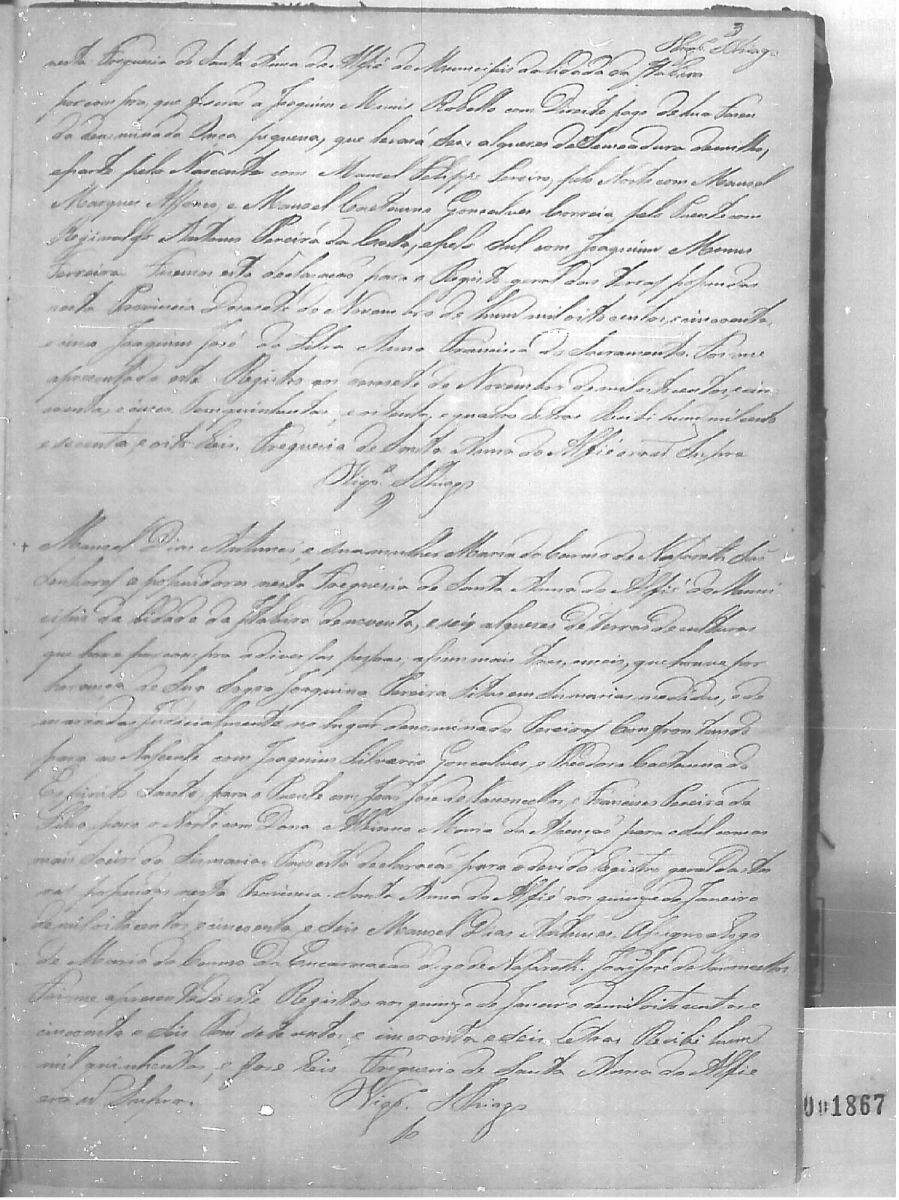 3
nesta Freguesia de Santa Anna do Alfié do Municipio da Cidade da Itabira
por compra, que a Joaquim Rabello com Direito pago de sua
da denominada Onça pequena, que levará alqueres de Semeadura de milho,
e parte pelo Nascente com Manoel Felippe Pereira, pelo Norte com Manoel
Marques Affonço, e Manoel Caetanno Gonçalves Correia pelo Puente com
Reginaldo Antonio Pereira da Costa, e pelo Sul com Joaquim
Ferreira esta declaração para o Registo geral das terras possuidas
nesta Provincia Desasete de Novembro de hum mil oito centos, e cincoenta,
e cinco Joaquim José da Silva Anna Francisca do Sacramento. Foi me
apresentado este Registro aos desasete de Novembro de mil oito centos, e cin
coenta, e cinco. Tem quinhentas, e oitenta, e quatro Letras Recibi hum mil cento
e secenta, e oito Reis. Freguesia de Santa Anna do Alfié era ut Supra
Vigr.º SThiago
Manoel Dias Antunes, e sua mulher Maria do Carmo de Nasareth são
Senhores e possuidores nesta Freguesia de Santa Anna do Alfié do Muni
cipio da Cidade da Itabira de noventa, e seis alqueres de terras de culturas
que houve por compra a diversas pessoas; assim mais tres, e meio, que houve por
herança de Sua Sogra Joaquina Pereira Sitas em Sismarias medidas, e de
marcadas Judicialmente no lugar denominado Pereiras Confrontando
para ao Nascente com Joaquim Silverio Gonçalves, e Theodora Caetanna do
Espirito Santo, para o Puente com João Jose de Vasconcellos, e Francisco Pereira da
Silva, para o Norte com Dona Albina Maria da Assenção para o Sul com os
mais Socios da Sismaria. Faço esta declaração para o devido Registro geral das ter
ras possuidas nesta Provincia. Santa Anna do Alfié aos quinze de Janeiro
de mil oito centos, e cincoenta, e seis Manoel Dias Antunes. Assigno a rogo
de Maria do Carmo da Encarnação digo de Nasareth. João Jose de Vasconcellos.
Foi me apresentado este Registro aos quinze de Janeiro de mil oito centos, e
cincoenta e seis Tem sete centos, e cincoenta e seis Letras Recibi hum
mil quinhentos, e dose Reis Freguesia de Santa Anna do Alfié
era ut Supra. Vigr.º SThiago
1867